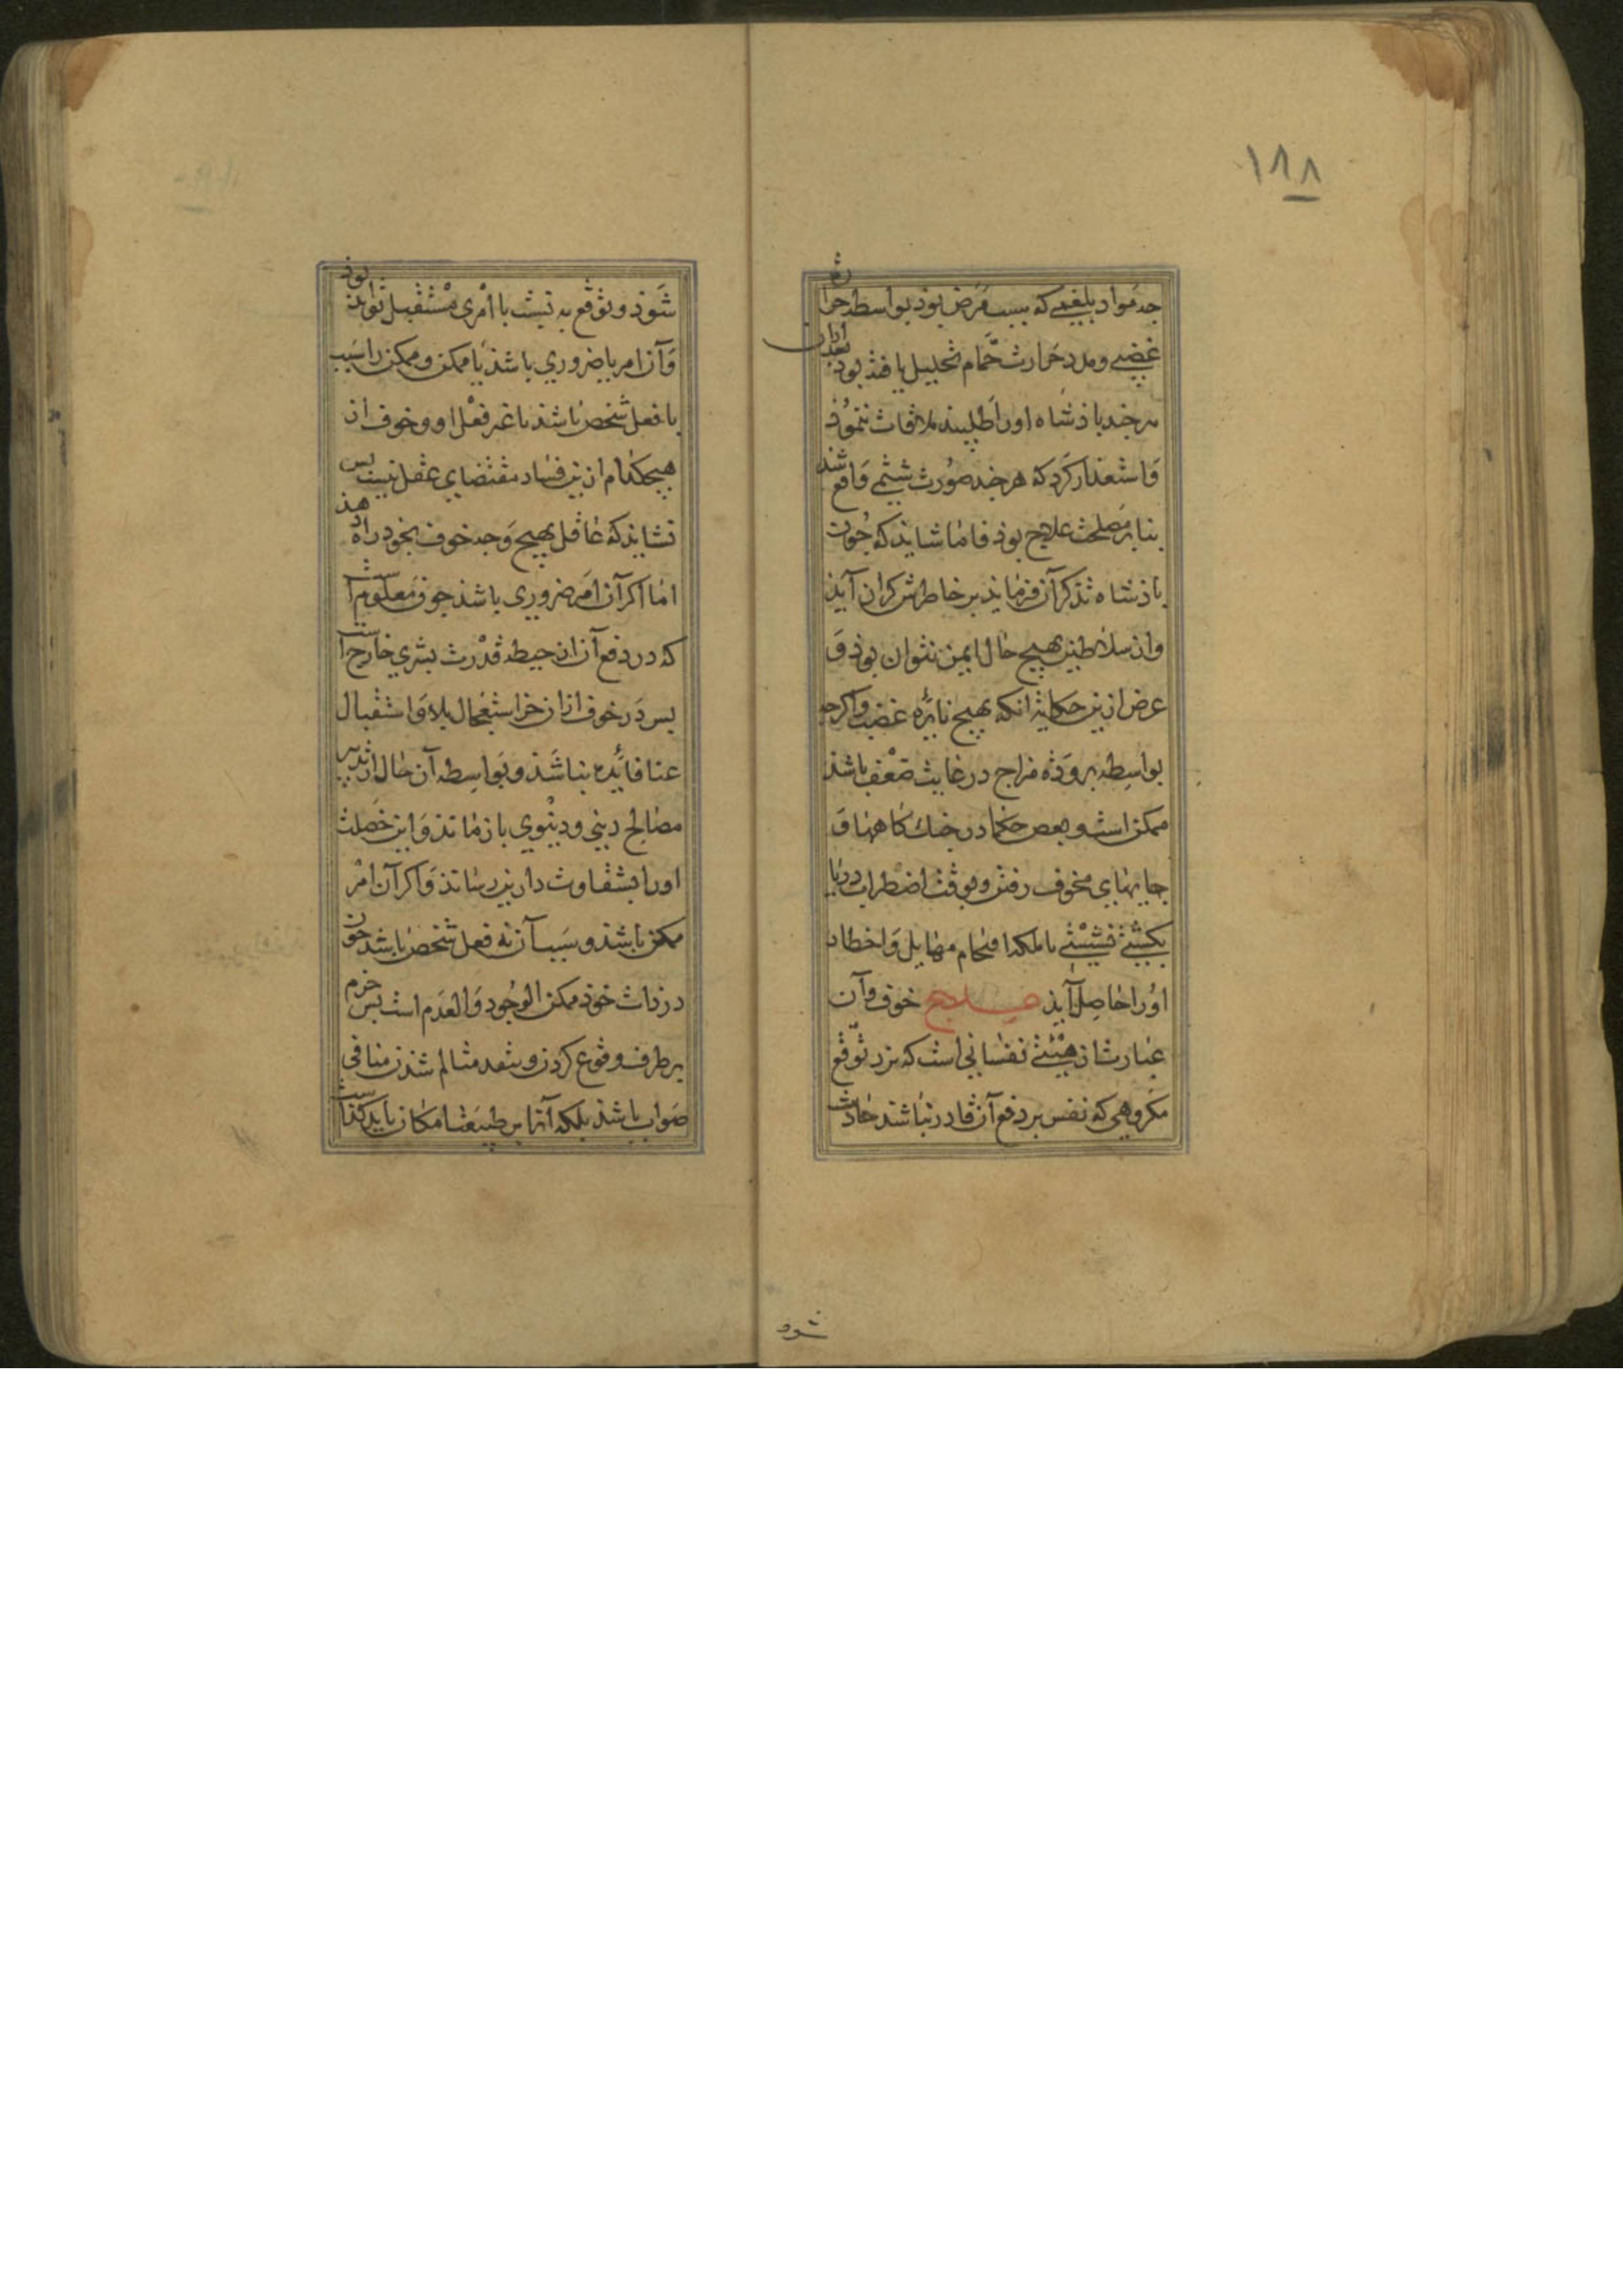 ١٨٨
جه مواد بلغمی که سبب مرض بود بواسطه حرارت
غضبی و مدد حرارت حمام تحلیل یافته بود بعد ازان
هرچند باذشاه اورا طلبید ملاقات ننمود
و استعذار کرد که هرچند صورت شتمی واقع شد
بنا بر مصلحت علاج بوذ فاما شاید که چون
باذشاه تذکر آن فرماید بر خاطرش کران آید
واز سلاطین بهیچ حال ایمن نتوان بوذ و
غرض ازین حکایة انکه تهییج نایره غضب واکرچه
بواسطه برودة مزاج در غایت ضعف باشذ
ممکن است و بعضی حکما در جنک کاهها و
جایهای مخوف رفتن و بوقت اضطراب دریا
بکشتی نشستی تا ملکه اقتحام مهایل و اخطار
اورا حاصل آید علاج خوف وآن
عبارت از هیئتی نفسانی است که نزد توقع
مکروهی که نفس بر دفع آن قادر نباشد حادث
شود
شوذ و توقع به نسبت با امری مستقبل تواند بوذ
وآن امر یا ضروری باشذ یا ممکن و ممکن را سبب
یا فعل شخص باشذ یا غیر فعل او و خوف از
هیچکدام ازین قساد مقتضای عقل نیست بس
نشاید که عاقل بهیچ وجه خوف بخود راه دهذ
اما اکر آن امر ضروری باشد چون معلومست
که در دفع آن از حیطه قدرت بشری خارجست
بس در خوف ازان جز استعجال بلا و استقبال
عنا فائده نباشذ و بواسطه آن حال از تدبیر
مصالح دینی و دنیوی بازماند و این خصلت
اورا بشقاوت دارین رساند و اکر آن امر
ممکن باشد و سبب آن نه فعل شخص باشد چون
در ذات خود ممکن الوجود والعدم است بس جزم
بر طرف وقوع کردن و بنقد متالم شدن منافی
صواب باشذ بلکه آنرا بر طبیعت امکان باید کذاشت